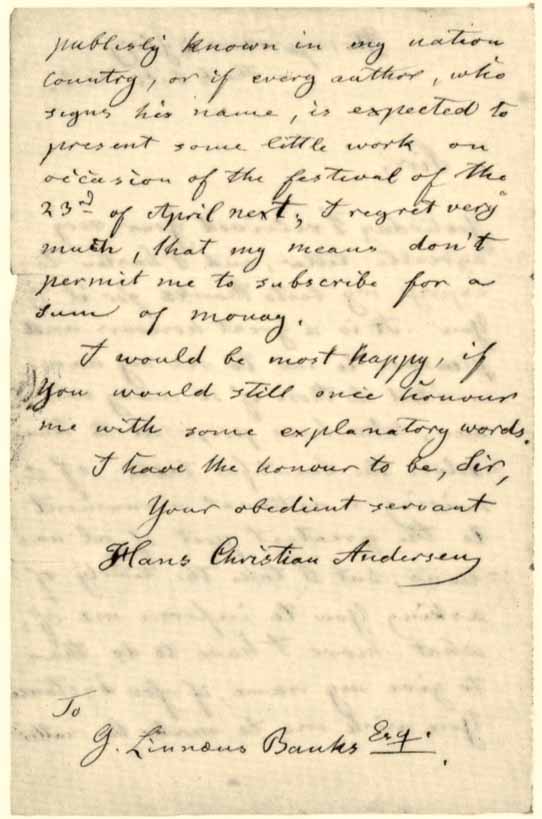 publisly known in my nation
country, or if every author, who
signs his name, is expected to
present some little work on
occasion of the festival of the
23rd of April next; I regret very
much, that my means don't
permit me to subscribe for a
sum of monay.
I would be most happy, if
You would still once honour
me with some explanatory words.
I have the honour to be, Sir,
Your obedient servant
Hans Christian Andersen
To
G. Linnæus Banks Esq.